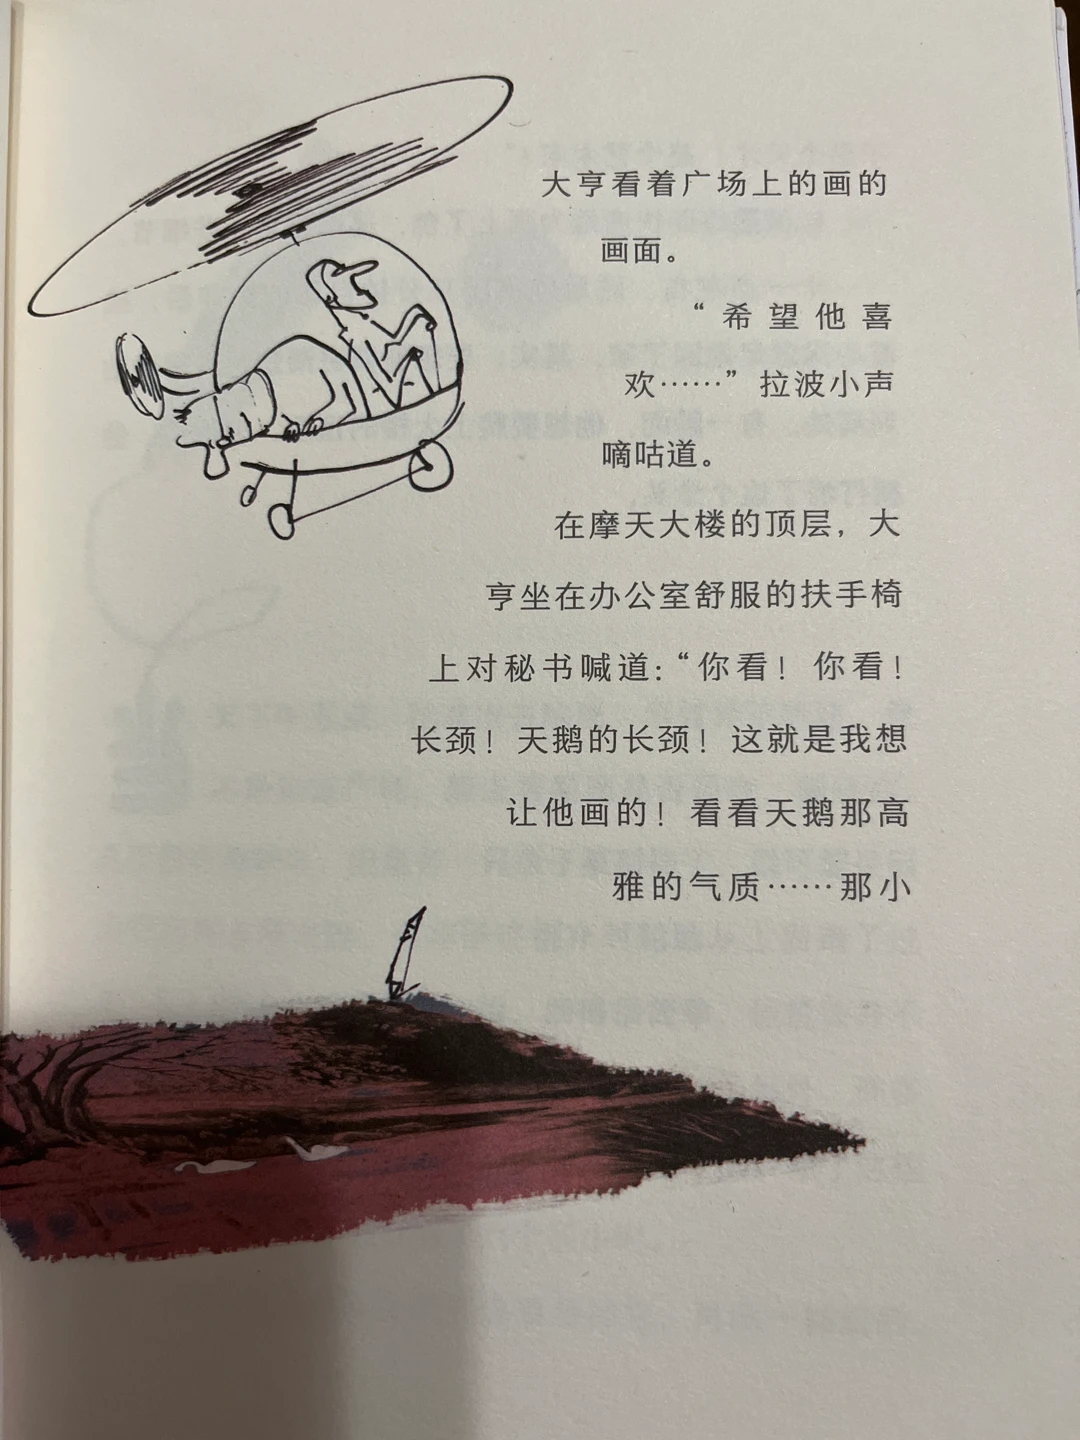 大亨看着广场上的画的
画面。
“希望他喜
欢……”拉波小声
嘀咕道。
在摩天大楼的顶层，大
亨坐在办公室舒服的扶手椅
上对秘书喊道：“你看！你看！
长颈！天鹅的长颈！这就是我想
让他画的！看看天鹅那高
雅的气质……那小